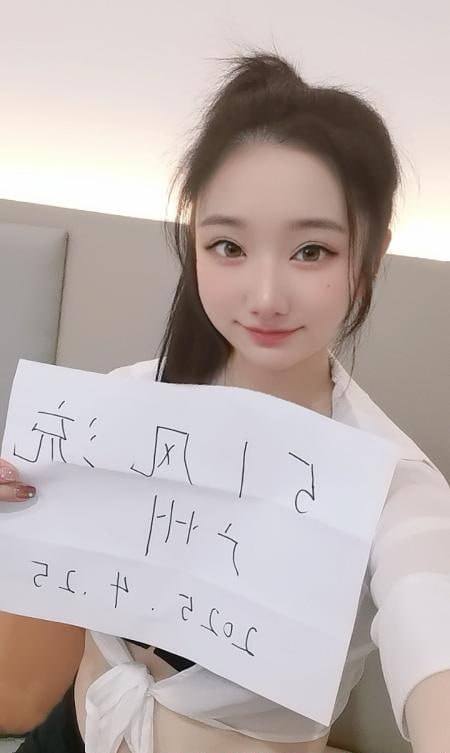 51风流
广州
2025.4.25